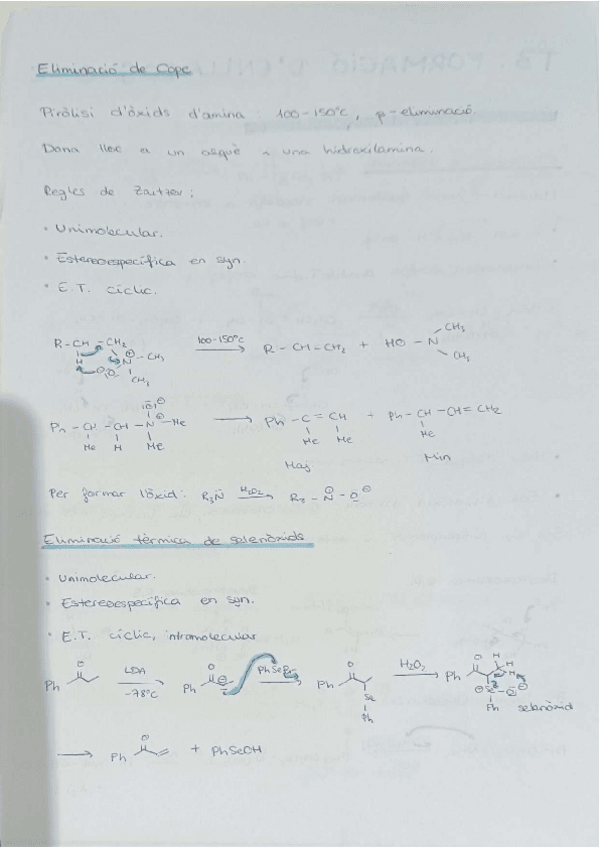 Eliminació de Cope
Piròlisi d'òxids d'amina : 100-150ºC, β-eliminació.
Dona lloc a un alquè i una hidroxilamina.
Regles de Zaitzev :
• Unimolecular.
• Estereoespecífica en syn.
• E.T. cíclic.
R - CH - CH2 100-150ºC R - CH - CH2 + HO - N CH3
H O N - CH3 CH3
CH3
Ph - CH - CH - N - Me → Ph - C = CH + Ph - CH - CH = CH2
Me H Me Me Me Me
Maj Min
Per formar l'òxid : R3N H2O2 R3 - N - O
Eliminació tèrmica de selenòxids
• Unimolecular.
• Estereoespecífica en syn.
• E.T. cíclic, intramolecular
Ph O LDA -78ºC Ph O PhSeBr Ph O Se Ph H2O2 Ph O H H Se O Ph selenòxid
→ Ph O + PhSeOH